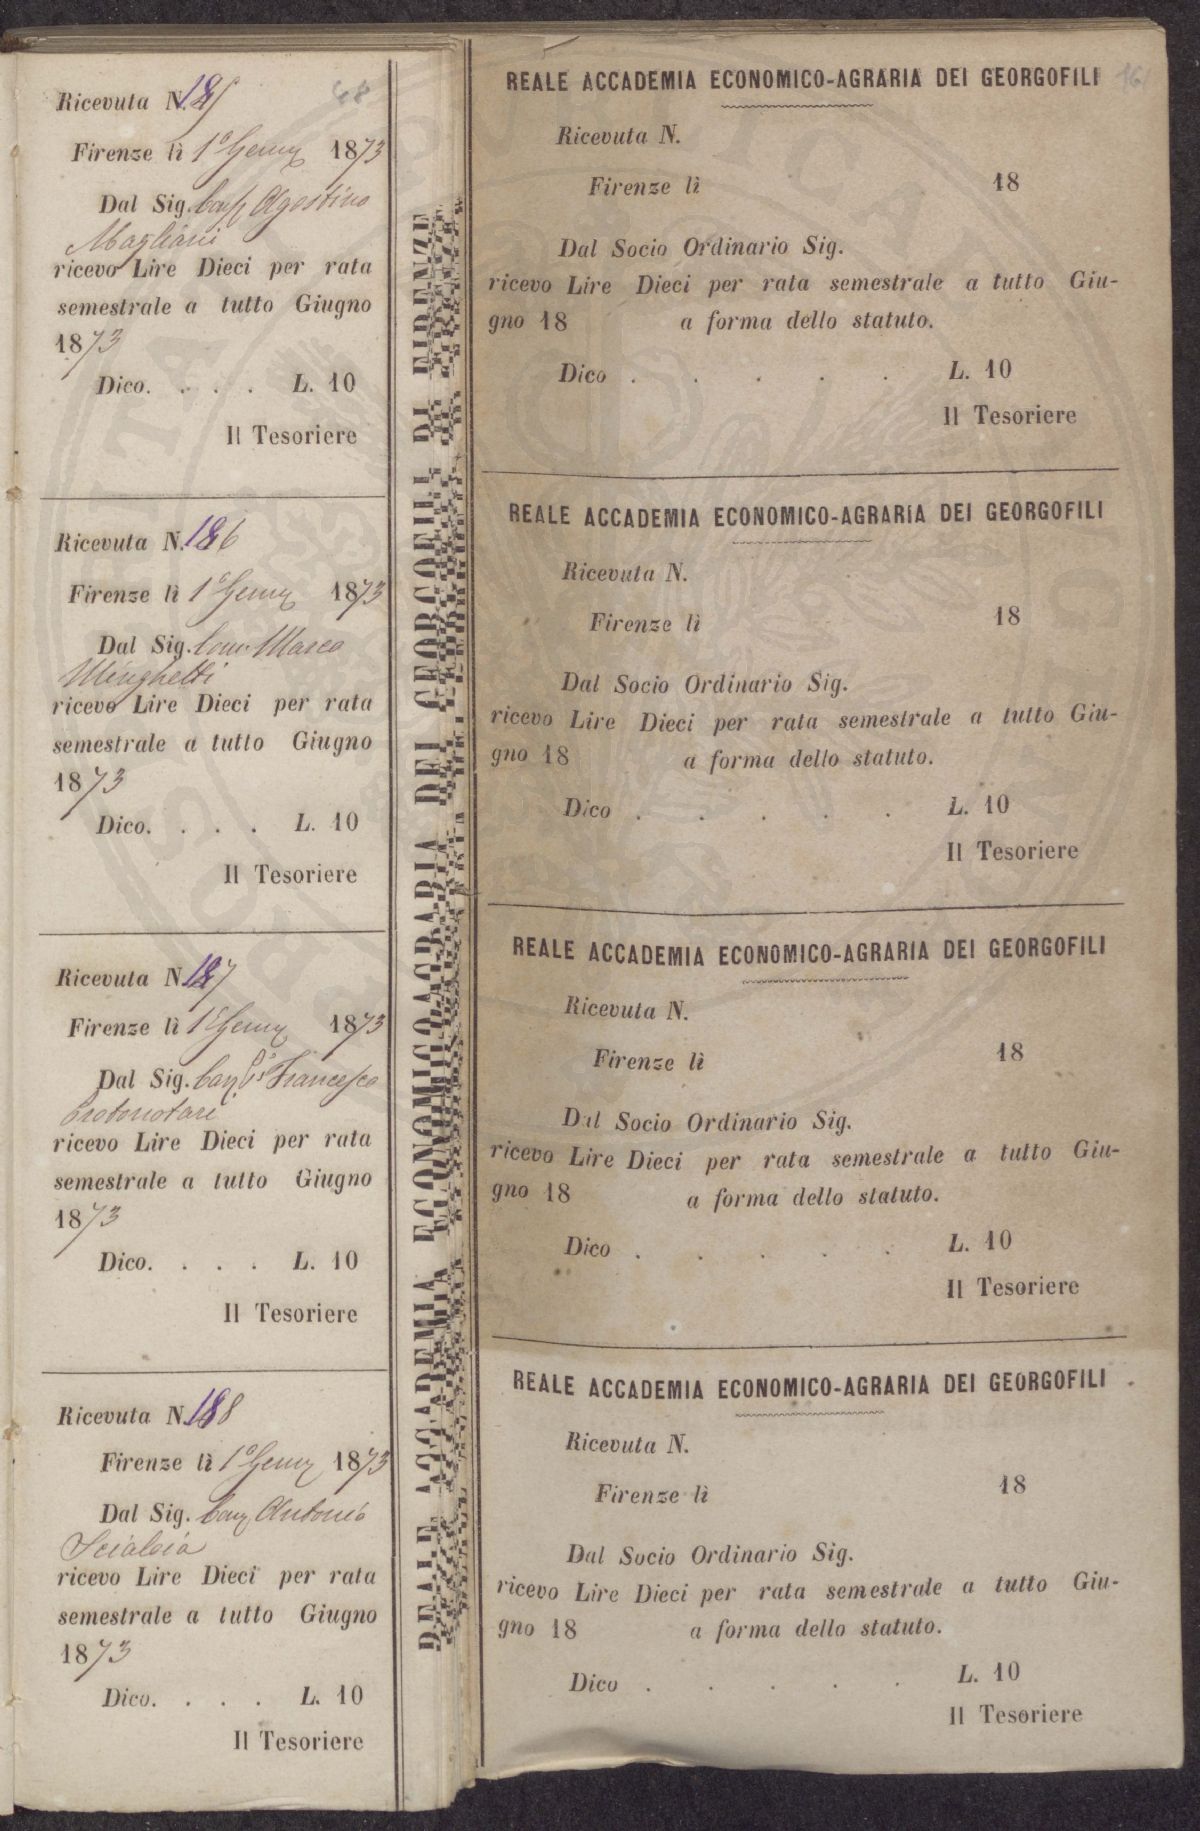 48
Ricevuta N. 185
Firenze lì 1º Genn 1873
Dal Sig. Agostino
Magliani
ricevo Lire Dieci per rata
semestrale a tutto Giugno
1873
Dico. . . . L. 10
Il Tesoriere
Ricevuta N. 186
Firenze lì 1º Genn 1873
Dal Sig. Com. Marco
Minghetti
ricevo Lire Dieci per rata
semestrale a tutto Giugno
1873
Dico. . . . L. 10
Il Tesoriere
Ricevuta N. 187
Firenze lì 1º Genn 1873
Dal Sig. Cav. Francesco
Protonotari
ricevo Lire Dieci per rata
semestrale a tutto Giugno
1873
Dico. . . . L. 10
Il Tesoriere
Ricevuta N. 188
Firenze lì 1º Genn 1873
Dal Sig. Cav Antonio
Scialoia
ricevo Lire Dieci per rata
semestrale a tutto Giugno
1873
Dico. . . . L. 10
Il Tesoriere
REALE ACCADEMIA ECONOMICO-AGRARIA DEI GEORGOFILI DI FIRENZE
REALE ACCADEMIA ECONOMICO-AGRARIA DEI GEORGOFILI
Ricevuta N.
Firenze lì 18
Dal Socio Ordinario Sig.
ricevo Lire Dieci per rata semestrale a tutto Giu-
gno 18 a forma dello statuto.
Dico . . . . . L. 10
Il Tesoriere
REALE ACCADEMIA ECONOMICO-AGRARIA DEI GEORGOFILI
Ricevuta N.
Firenze lì 18
Dal Socio Ordinario Sig.
ricevo Lire Dieci per rata semestrale a tutto Giu-
gno 18 a forma dello statuto.
Dico . . . . . L. 10
Il Tesoriere
REALE ACCADEMIA ECONOMICO-AGRARIA DEI GEORGOFILI
Ricevuta N.
Firenze lì 18
Dal Socio Ordinario Sig.
ricevo Lire Dieci per rata semestrale a tutto Giu-
gno 18 a forma dello statuto.
Dico . . . . . L. 10
Il Tesoriere
REALE ACCADEMIA ECONOMICO-AGRARIA DEI GEORGOFILI
Ricevuta N.
Firenze lì 18
Dal Socio Ordinario Sig.
ricevo Lire Dieci per rata semestrale a tutto Giu-
gno 18 a forma dello statuto.
Dico . . . . . L. 10
Il Tesoriere